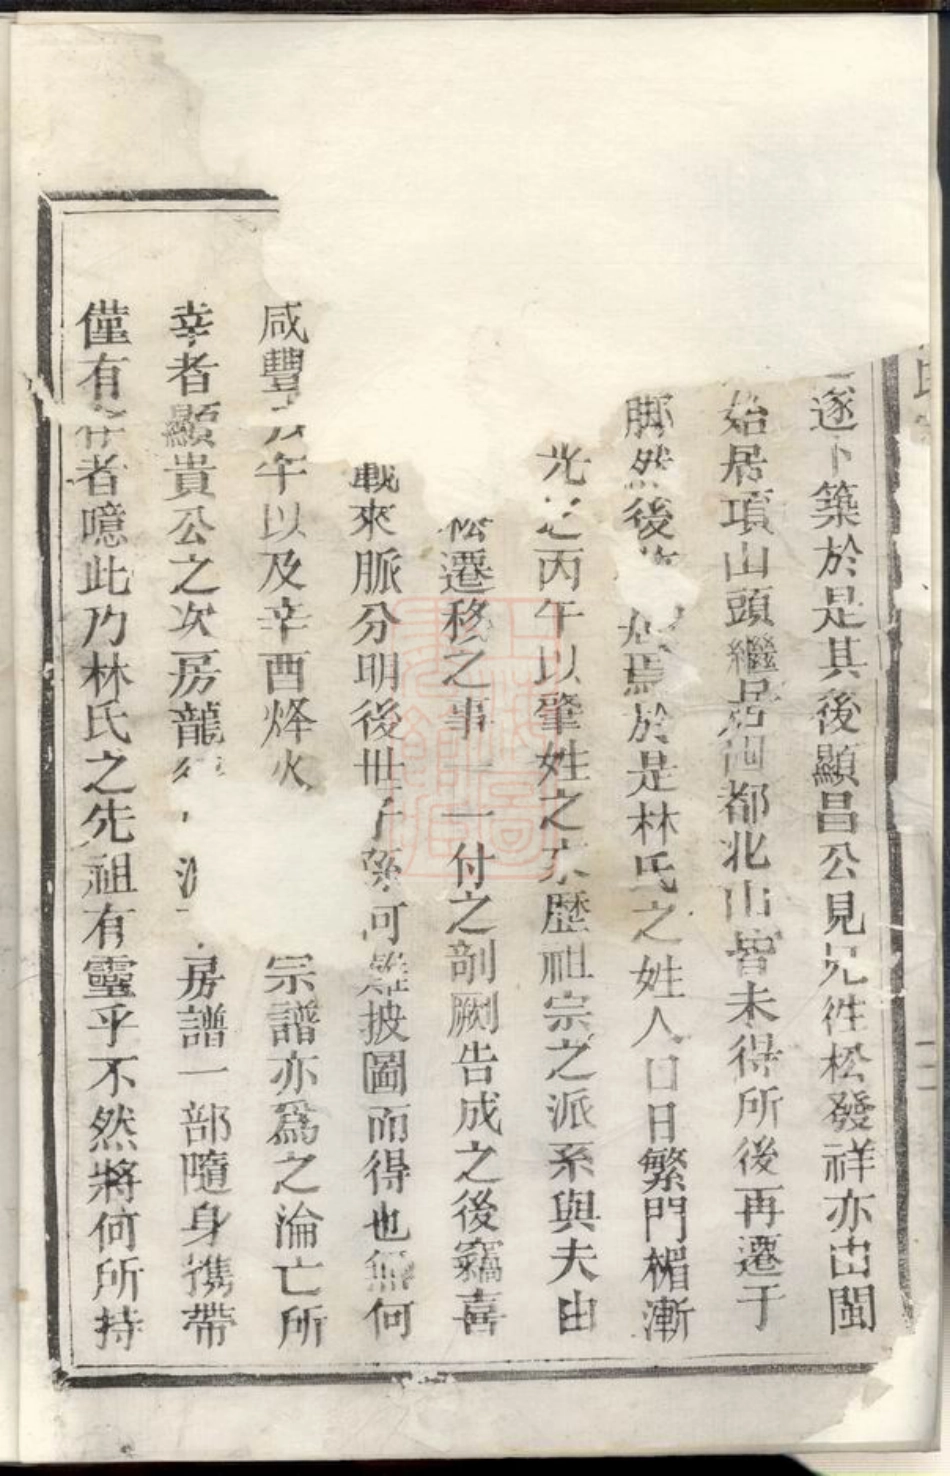 遂卜築於是其後顯昌公見兄徃松發祥亦由閩
始居項山頭繼居河都北山皆未得所後再遷于
脚然後焉於是林氏之姓人口日繁門楣漸
光之丙午以肇姓之來歷祖宗之派系與夫由
松遷移之事一一付之剖劂告成之後竊喜
載來脈分明後世子孫可披圖而得也無何
咸豐午以及辛酉烽火宗譜亦爲之淪亡所
幸者顯貴公之次房龍派房譜一部隨身携帶
僅有存者噫此乃林氏之先祖有靈乎不然將何所持